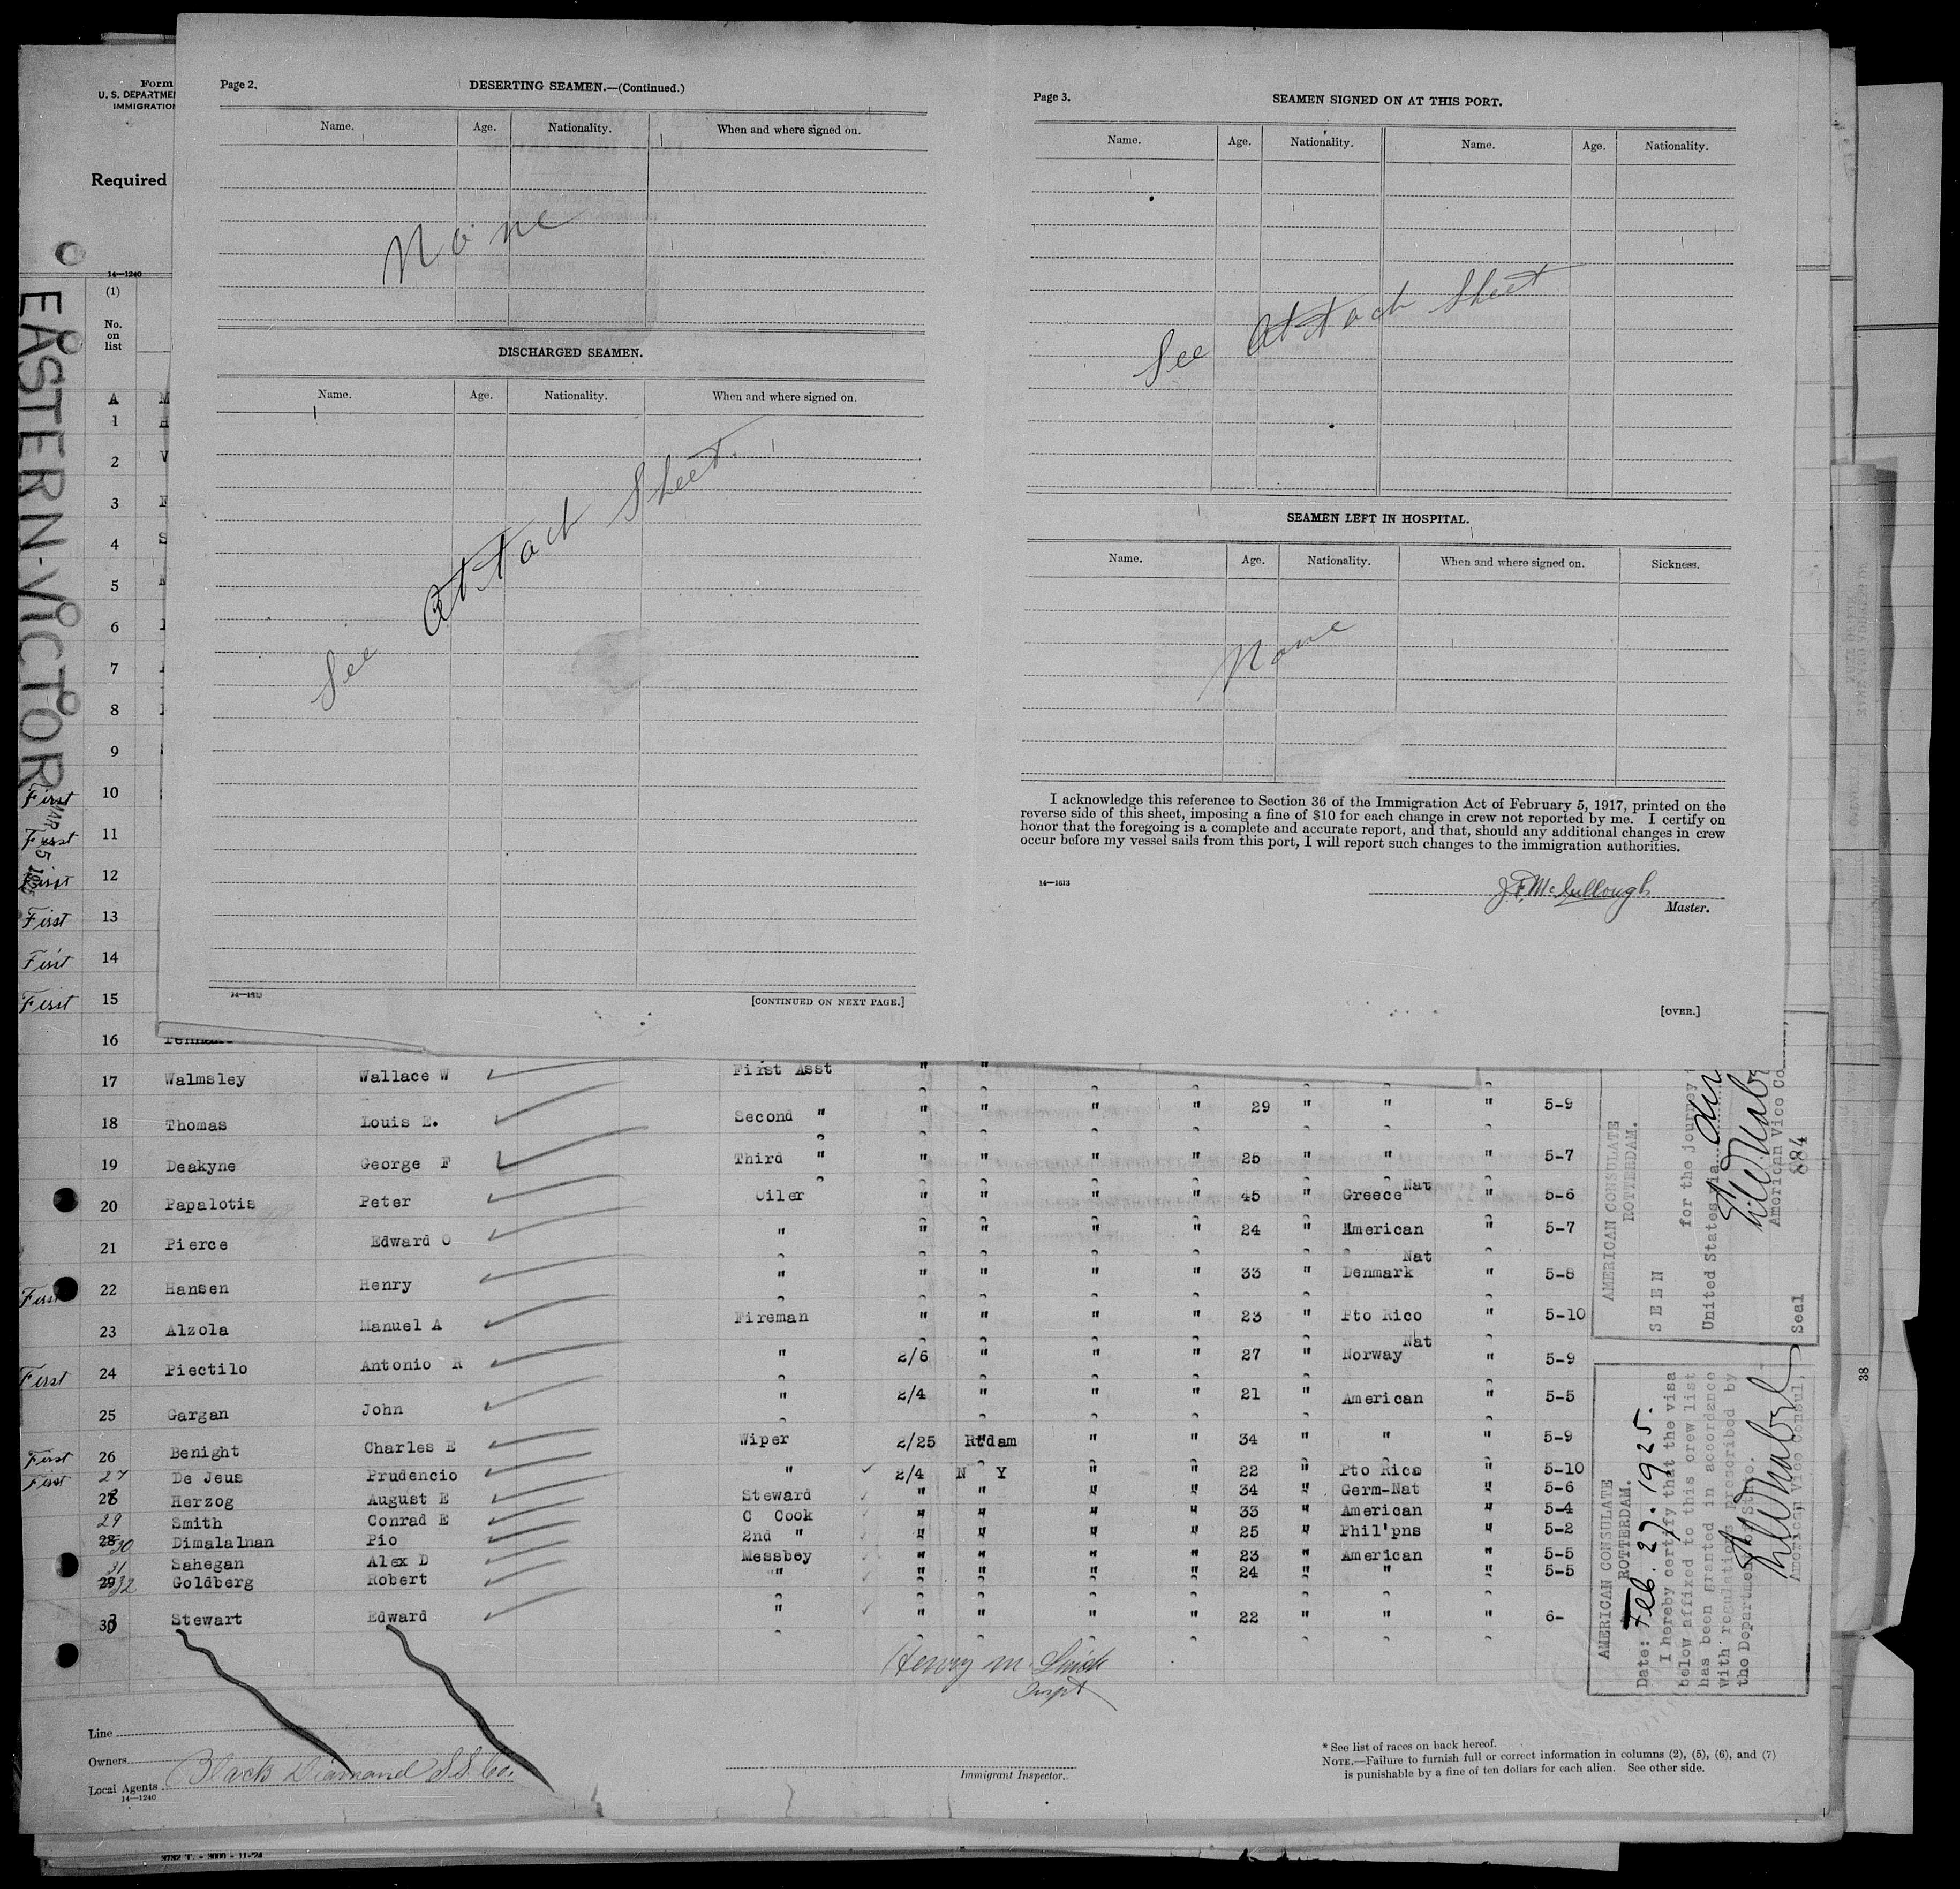 Page 2.
DESERTING SEAMEN.—(Continued.)
Name. Age. Nationality. When and where signed on.
None
DISCHARGED SEAMEN.
Name. Age. Nationality. When and where signed on.
See Attach Sheet.
14—1613
[CONTINUED ON NEXT PAGE.]
Page 3.
SEAMEN SIGNED ON AT THIS PORT.
Name. Age. Nationality. Name. Age. Nationality.
See Attach Sheet
SEAMEN LEFT IN HOSPITAL.
Name. Age. Nationality. When and where signed on. Sickness.
None
I acknowledge this reference to Section 36 of the Immigration Act of February 5, 1917, printed on the
reverse side of this sheet, imposing a fine of $10 for each change in crew not reported by me. I certify on
honor that the foregoing is a complete and accurate report, and that, should any additional changes in crew
occur before my vessel sails from this port, I will report such changes to the immigration authorities.
14—1613
J. F. McCullough
Master.
[OVER.]
Form
U. S. DEPARTME
IMMIGRATION
Required
14—1240
(1)
No.
on
list
EASTERN-VICTOR
MAR 5 1925
A M
1 H
2 V
3
4 S
5
6
7
8
9
First 10
First 11
First 12
First 13
First 14
First 15
16
17 Walmsley Wallace W First Asst " "
18 Thomas Louis E. Second " " " " " 29 " " " 5-9
19 Deakyne George F Third " " " " " 25 " " " 5-7
20 Papalotis Peter Oiler " " " " 45 " Greece Nat " 5-6
21 Pierce Edward O " " " " " 24 " American " 5-7
First 22 Hansen Henry " " " " " 33 " Denmark Nat " 5-8
23 Alzola Manuel A Fireman " " " " 23 " Pto Rico " 5-10
First 24 Piectilo Antonio R " 2/6 " " " 27 " Norway Nat " 5-9
25 Gargan John " 2/4 " " " 21 " American " 5-5
First 26 Benight Charles E Wiper 2/25 Rtdam " " 34 " " " 5-9
First 27 De Jeus Prudencio " 2/4 N Y " " 22 " Pto Rico " 5-10
28 Herzog August E Steward " " " " 34 " Germ-Nat " 5-6
29 Smith Conrad E C Cook " " " " 33 " American " 5-4
28 30 Dimalalnan Pio 2nd " " " " " 25 " Phil'pns " 5-2
31 Sahegan Alex D Messboy " " " " 23 " American " 5-5
29 32 Goldberg Robert " " " " " 24 " " " 5-5
30 Stewart Edward " " " " " 22 " " " 6-
Henry M. Inspt
Line
Owners
Local Agents Black Diamond S.S. Co.
14—1240
Immigrant Inspector.
* See list of races on back hereof.
NOTE.—Failure to furnish full or correct information in columns (2), (5), (6), and (7)
is punishable by a fine of ten dollars for each alien. See other side.
AMERICAN CONSULATE
ROTTERDAM.
SEEN
for the journey
United States via
American Vice Co
884
Seal
AMERICAN CONSULATE
ROTTERDAM.
Date: Feb. 27. 1925.
I hereby certify that the visa
below affixed to this crew list
has been granted in accordance
with regulations prescribed by
the Department of State.
American Vice Consul,
38
3732 T. - 3000 - 11-24